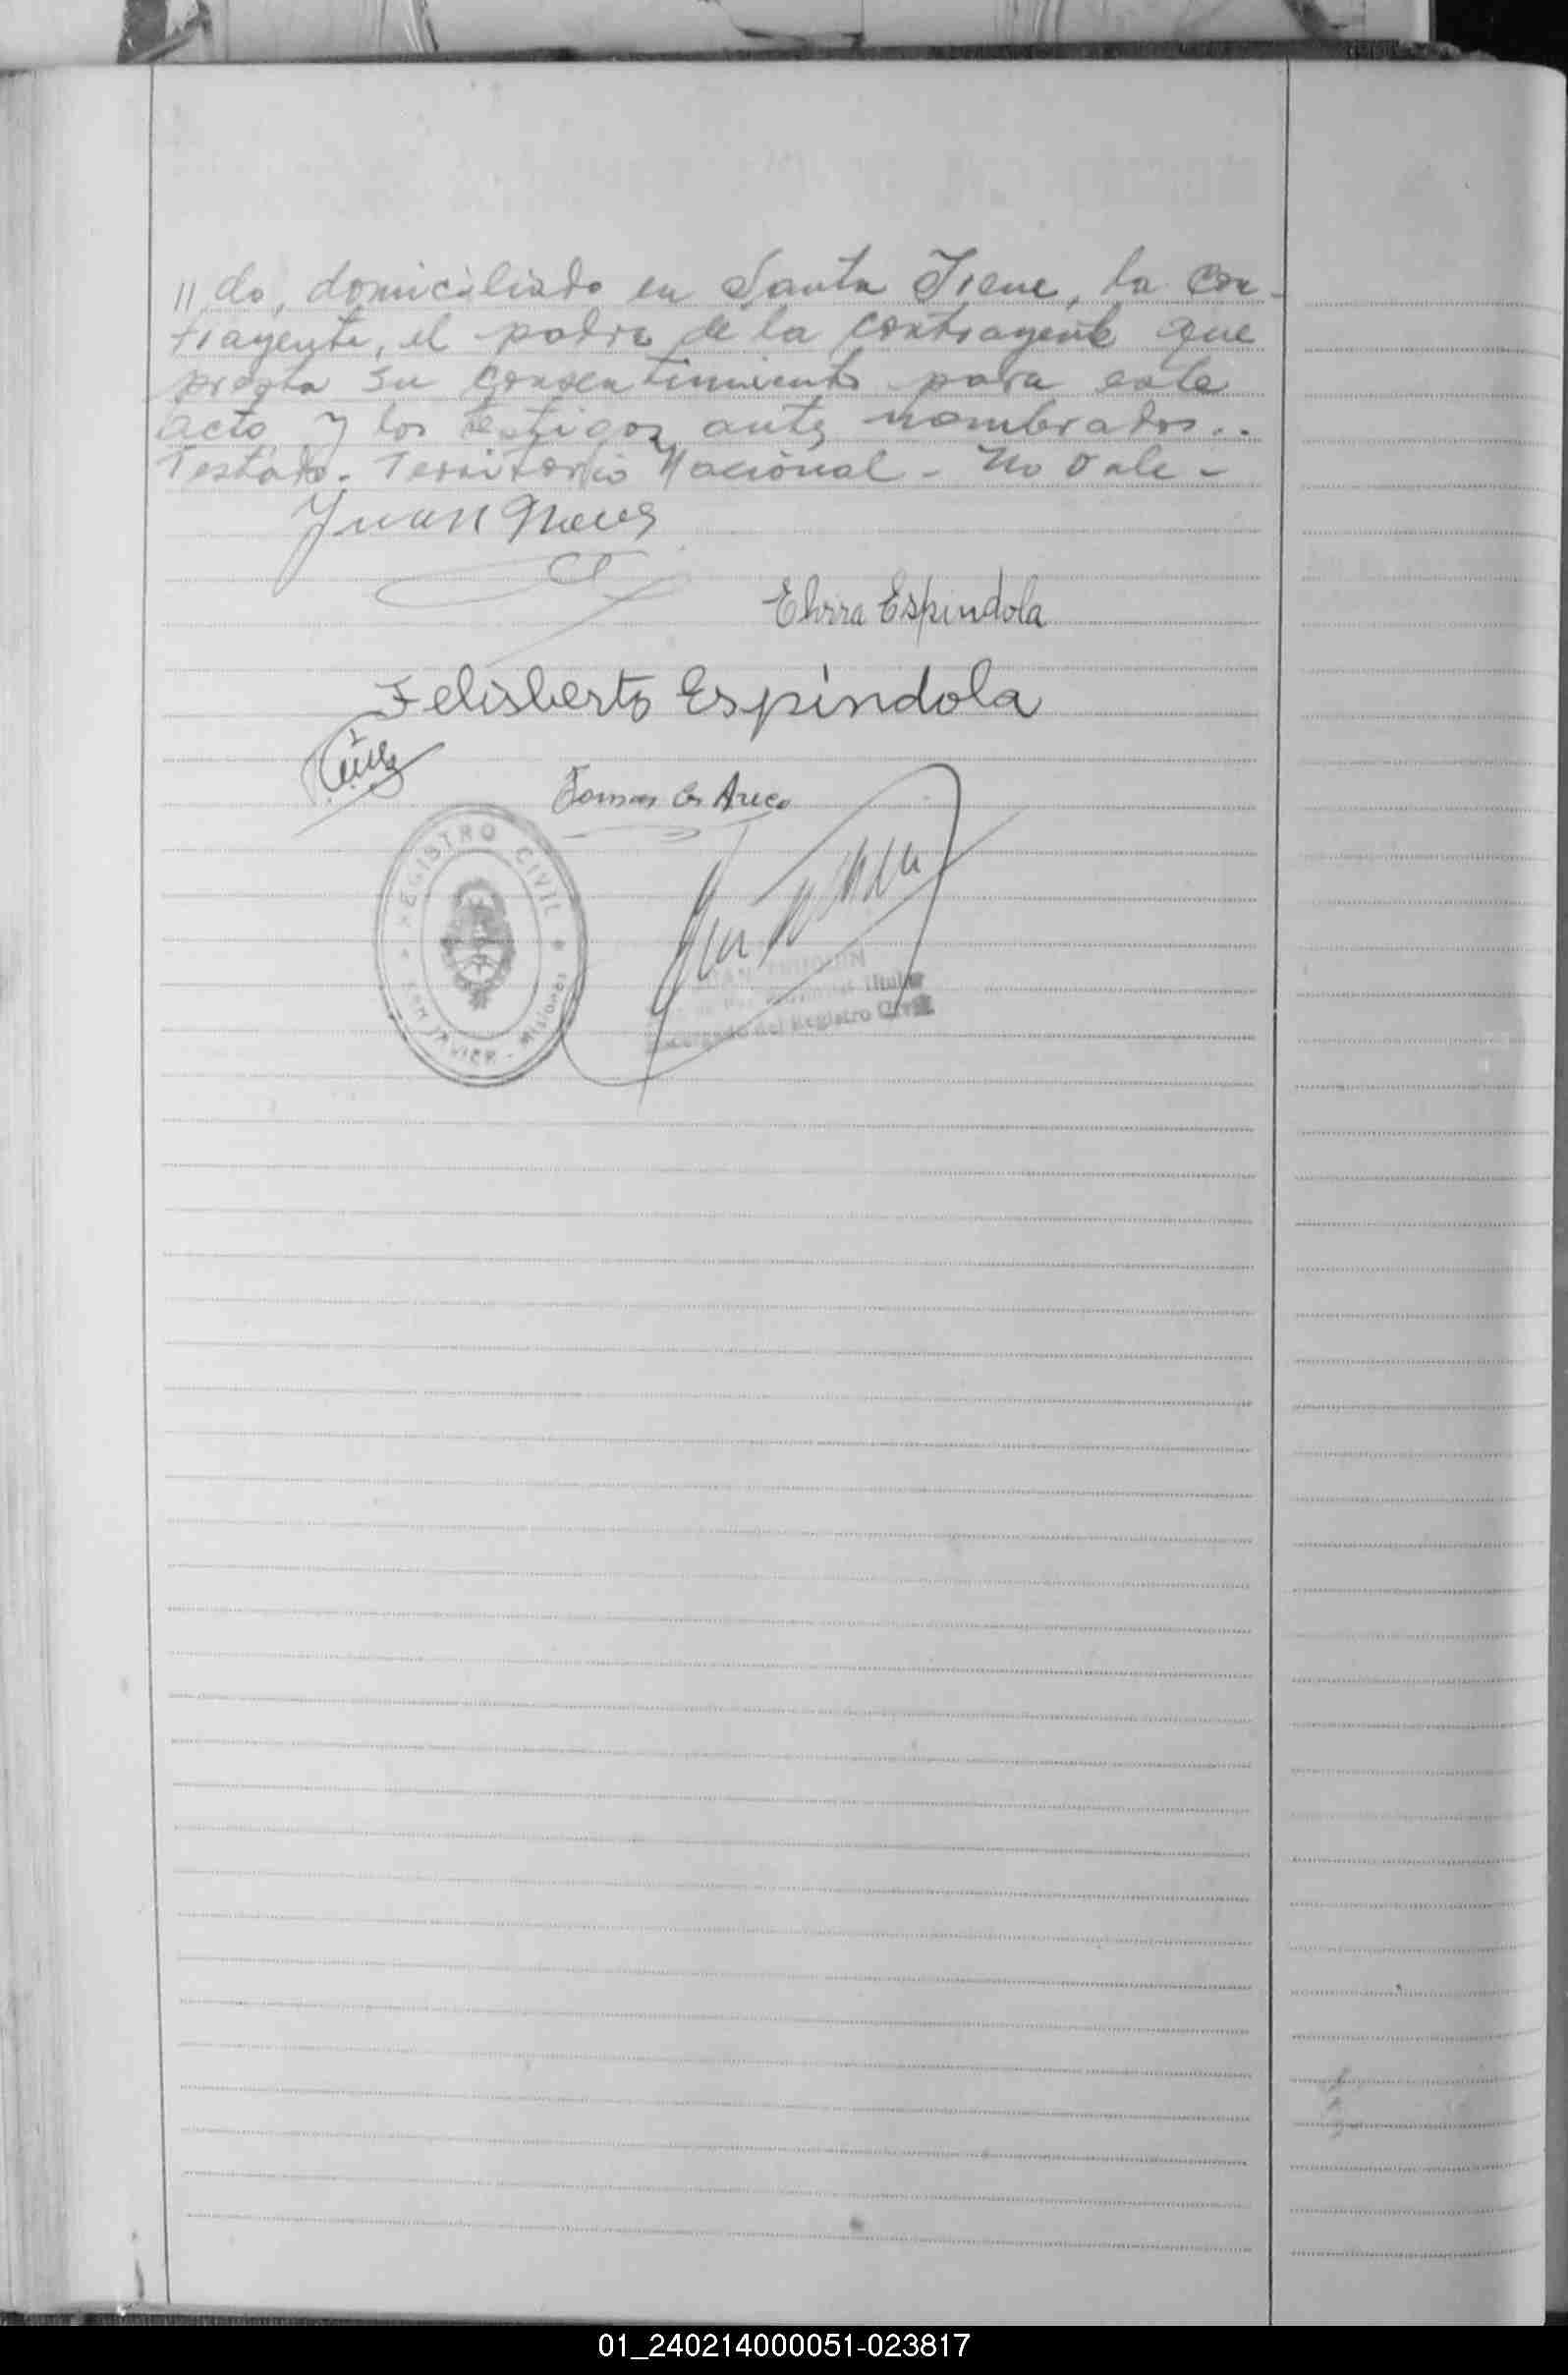 // do, domiciliado en Santa Irene, la con-
trayente, el padre de la contrayente que
presta su consentimiento para este
acto y los testigos antes nombrados..
Testado. Territorio Nacional - No vale -
Juan
Elvira Espindola
Felisberto Espindola
Tomas Areco
REGISTRO CIVIL
SAN JAVIER - Misiones
Titular
Encargado del Registro Civil
01_240214000051-023817